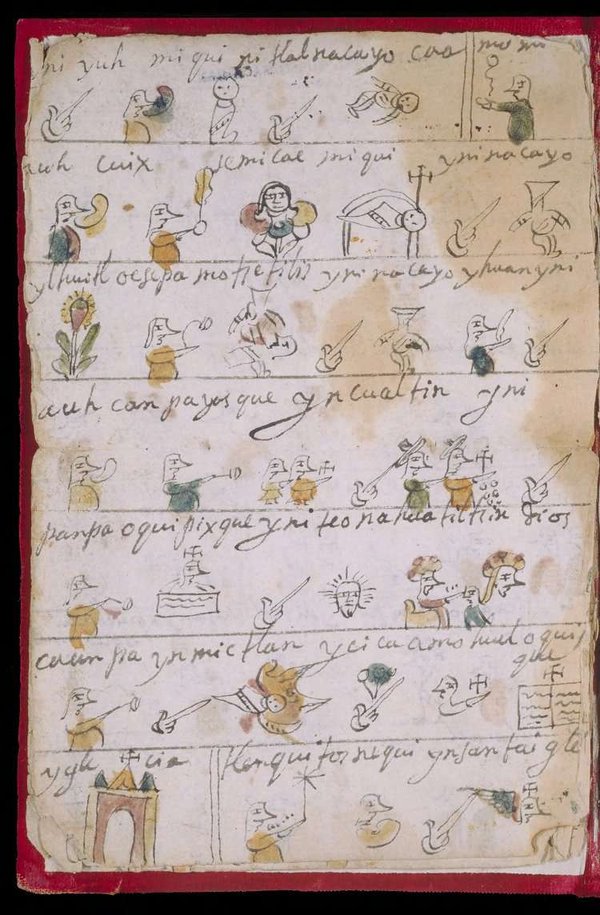 ni yuh miqui ni tlalnacayo caa mo mi
auh cuix semicac miqui yni nacayo
ylhuitl ocsepa motzetilis yni nacayo yhuan yni
auh canpa yasque yn cualtin yni
panpa oquipixque yni teonahuatiltzin Dios
canpa yn mictlan yeica amo huel oquipix
que
ygle cia tlenquitosnequi yn santa igle